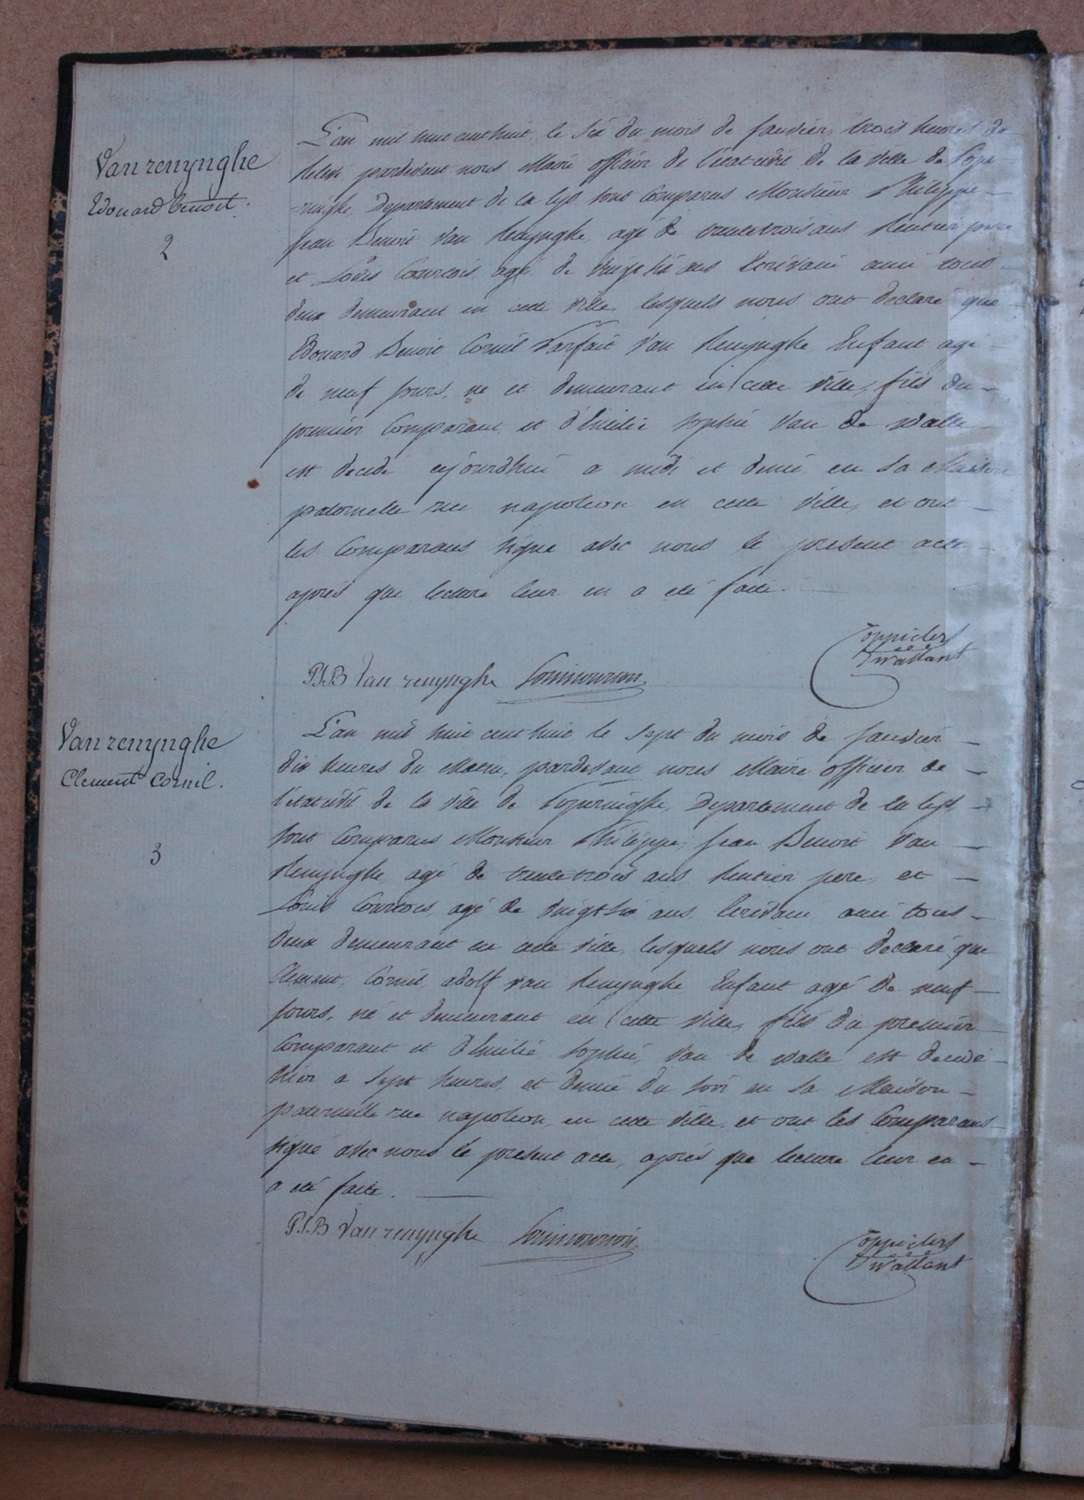 Van renynghe
Edouard benoit.
2
L'an mil huit cent huit, le six du mois de janvier, trois heures de
relevée pardevant nous Maire officier de l'état civil de la Ville de Pope-
-ringhe, Departement de la Lys, sont comparus Monsieur Philippe
Jean Benoit Van Renynghe, agé de trente trois ans Rentier, père
et Louis Courtois, agé de vingt six ans Ecrivain ami tous
deux demeurant en cette Ville, lesquels nous ont declaré que
Edouard Benoit Cornil Parfait Van Renynghe Enfant agé
de neuf jours, né et demeurant en cette Ville, fils du
premier Comparant et d'Emilie Sophie Van de Walle
est decedé aujourdhui a midi et demie en sa Maison
paternelle rue napoleon en cette Ville, et ont
les Comparans signé avec nous le present acte
après que lecture leur en a été faite.
P.J.B Van renynghe
Van renynghe
Clement Cornil.
3
L'an mil huit cent huit le sept du mois de janvier
dix heures du Matin, pardevant nous Maire officier de
l'état civil de la Ville de Poperinghe, Departement de la Lys
sont comparus Monsieur Philippe Jean Benoit Van
Renynghe agé de trente trois ans Rentier père et
Louis Courtois, agé de vingt six ans Ecrivain ami tous
deux demeurant en cette Ville, lesquels nous ont declaré que
Clement Cornil adolf Van Renynghe Enfant agé de neuf
jours, né et demeurant en cette Ville, fils du premier
Comparant et d'Emilie Sophie Van de Walle est decedé
hier a sept heures et demie du soir en sa Maison
paternelle rue napoleon en cette Ville, et ont les Comparans
signé avec nous le present acte, après que lecture leur en
a été faite.
P.J.B Van renynghe